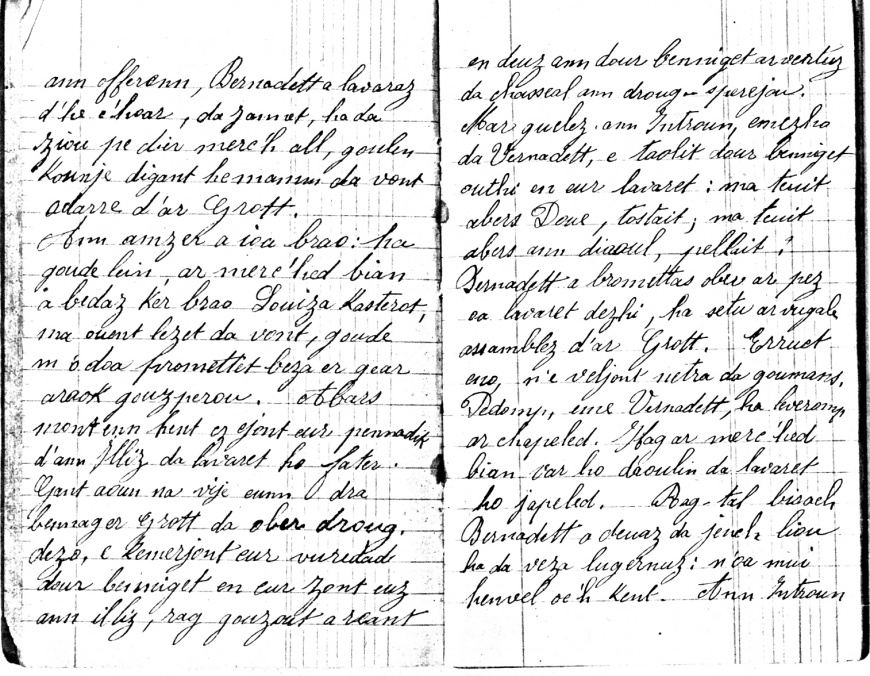 ann offerenn, Bernadett a lavaraz
d'he c'hoar, da Jannet, ha da
ziou pe dier merc'h all, goulen
Kounje digant he mamm da vont
adarre d'ar Grott.
Ann amzer a ioa brao: ha
goude lein ar merc'hed bian
a bedaz Ker brao Louiza Kasterot,
ma ouent lezet da vont, goude
m'o doa promettet beza er gear
araok gouzperou. Abars
mont enn hent ez ejont eur pennadik
d'ann Iliz da lavaret ho fater.
Gant aoun na vije eunn dra
bennag er Grott da ober droug
dezo, e Kemerjont eur vuredad
dour benniget en eur zont euz
ann iliz, rag gouzout a reant
en deuz ann dour benniget ar vertuz
da chasseal ann droug-sperejou.
Mar guelez ann Introun, emezho
da Vernadett, e taolit dour benniget
outhi en eur lavaret: ma teuit
abers Doue, tostait; ma teuit
abers ann diaoul, pellait!
Bernadett a bromettas ober ar pez
oa lavaret dezhi, ha setu ar vugale
assamblez d'ar Grott. Erruet
eno, n'e veljont netra da goumans.
Dedomp, eme Vernadett, ha leveromp
ar chapeled. Hag ar merc'hed
bian var ho daoulin da lavaret
ho japeled. Rag-tal bisach
Bernadett a deuaz da jench liou
ha da veza lugernuz: n'oa mui
henvel oc'h Kent. Ann Introun